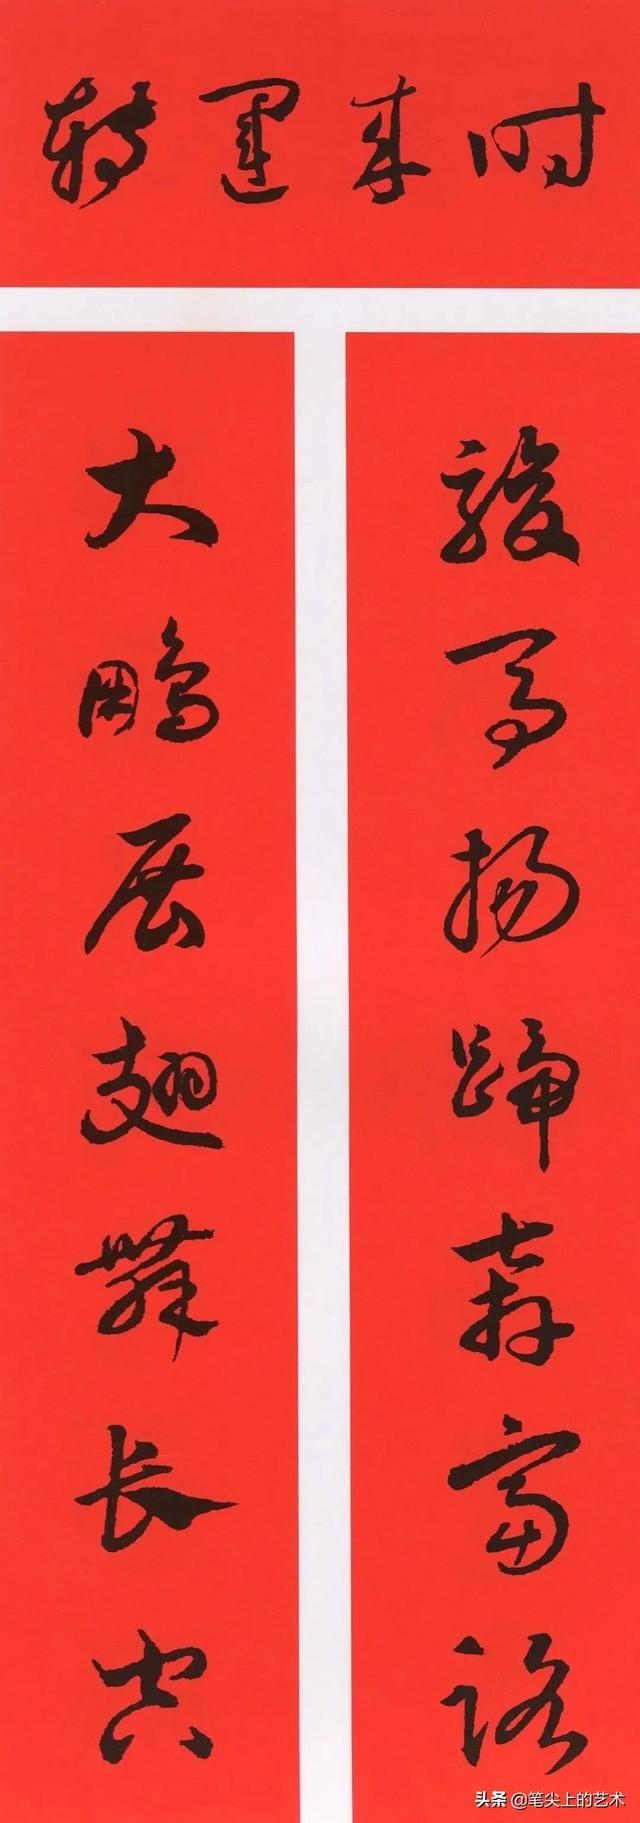 时来运转
骏马扬蹄奔富路
大鹏展翅舞长空
头条 @笔尖上的艺术